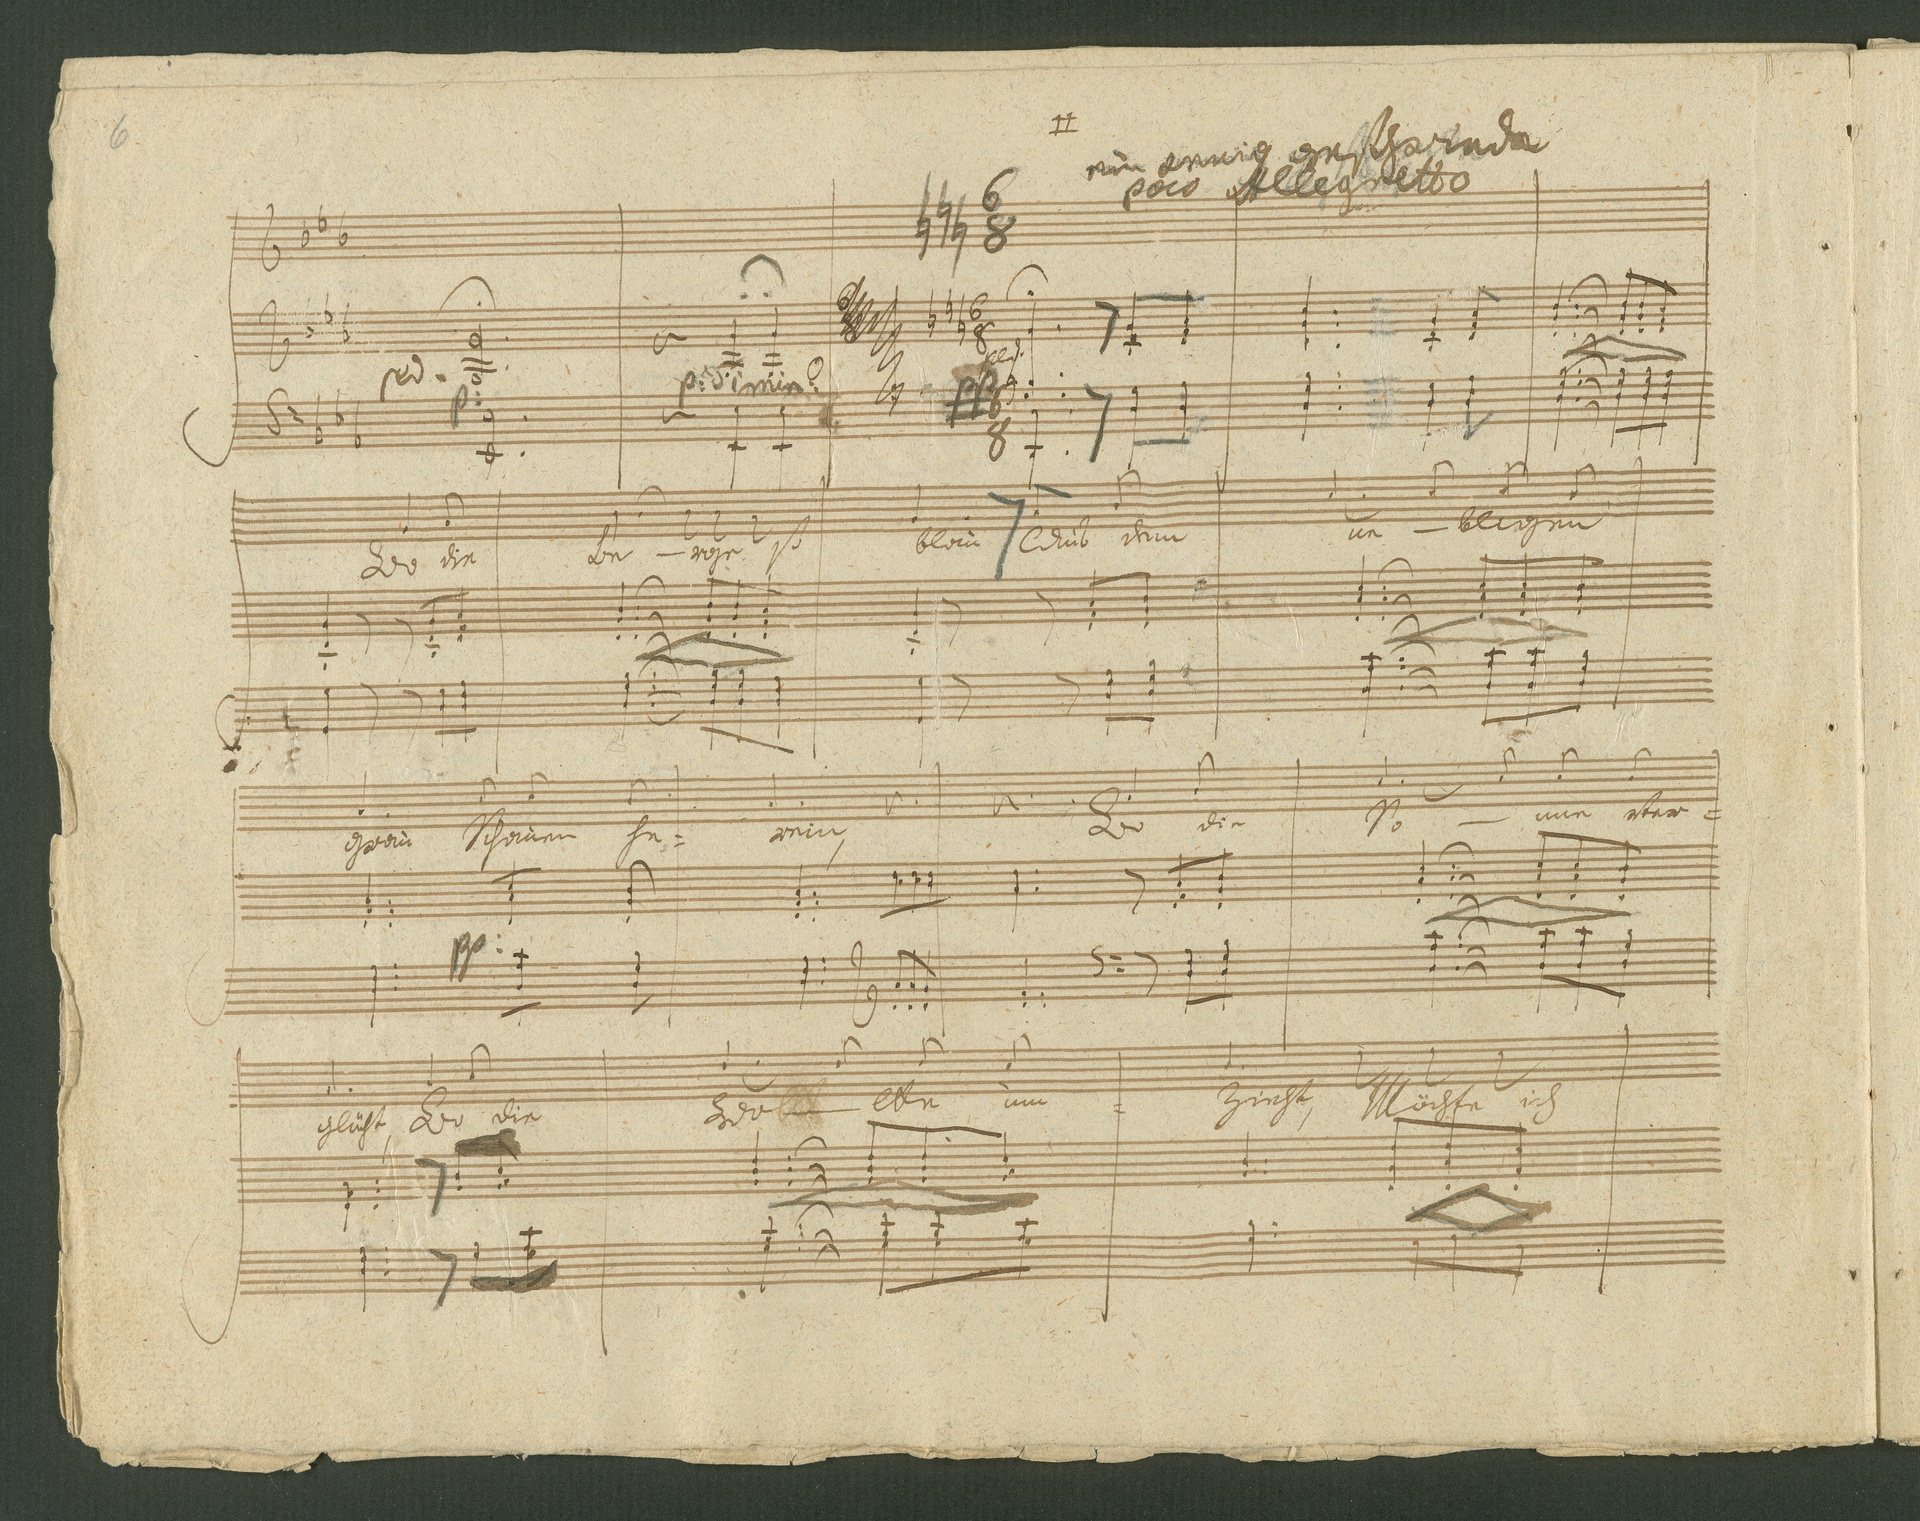 6
II
ein wenig geschwinde
poco Allegretto
6
8
6
8
ped.
p:
p: dimin:
pp
6
8
Wo die Be - rge so blau Aus dem ne - bligen
grau Schauen he = rein, Wo die So - nne ver =
pp:
glüht, Wo die Wo - lke um = zieht, Möchte ich